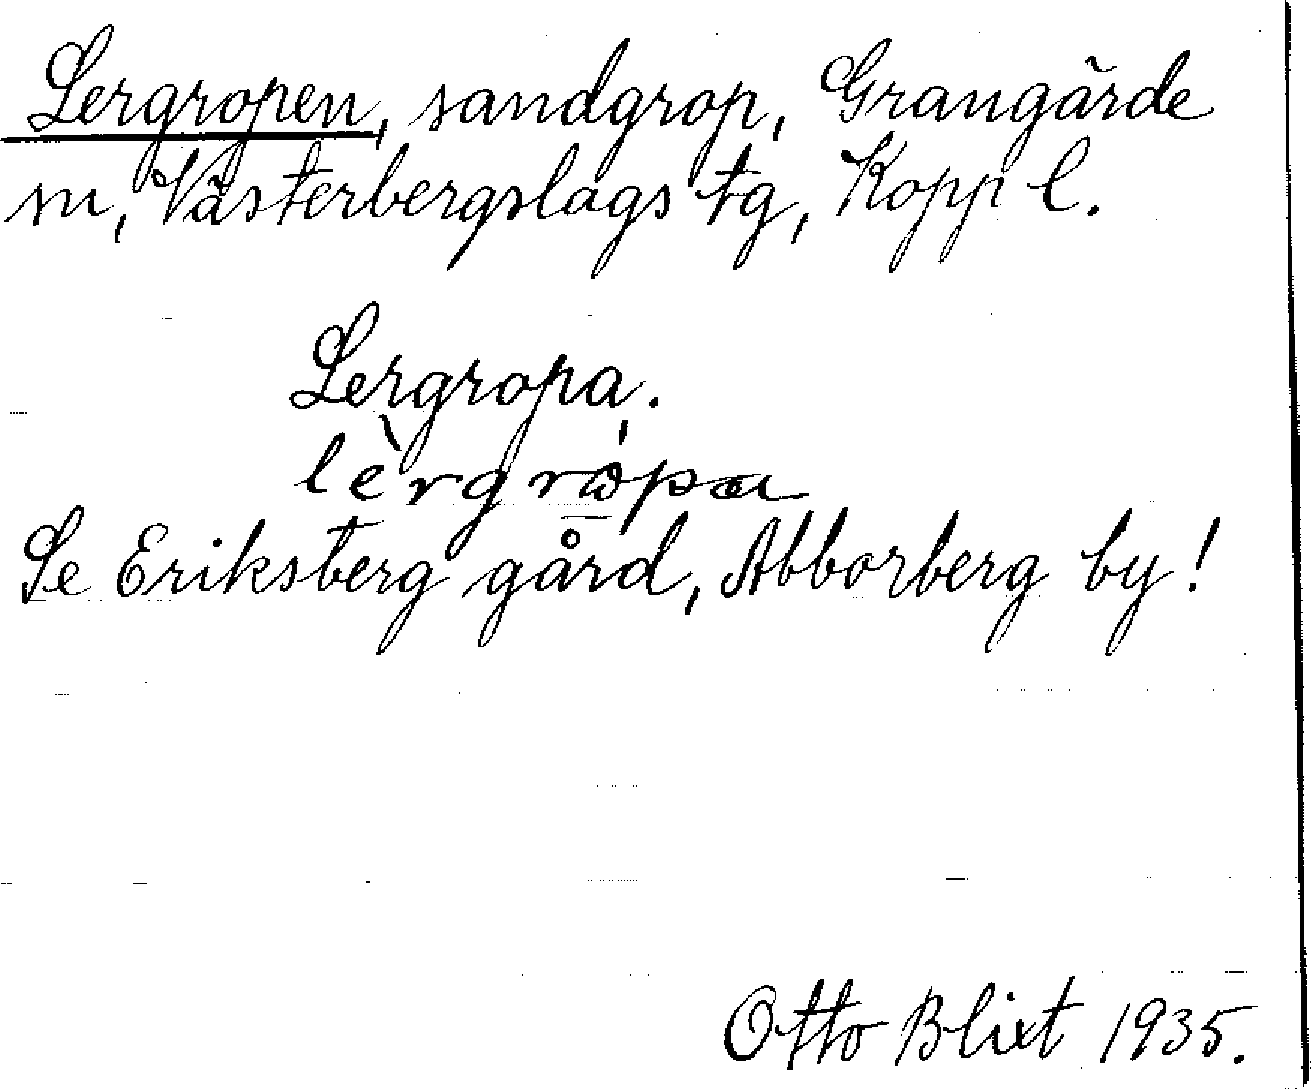 Lergropen, sandgrop, Grangärde
sn, Västerbergslags tg, Kopp l.
Lergropa.
lèrgrópa
Se Eriksberg gård, Abborberg by!
Otto Blixt 1935.